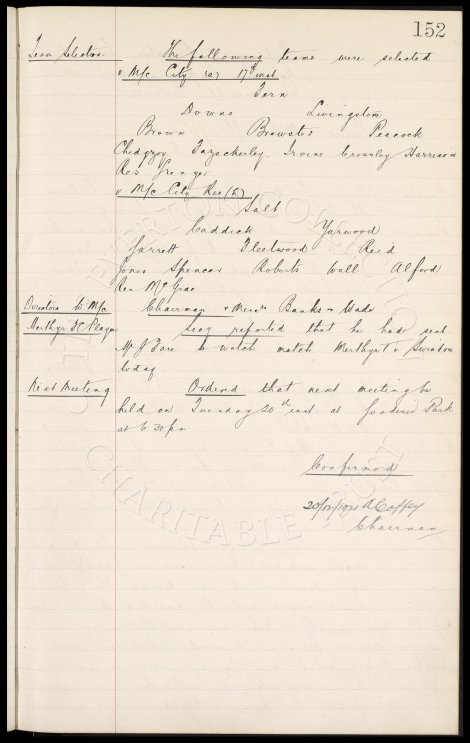 152
Team Selection The following teams were selected
v M/c City (a) 17th inst
Fern
Downs Livingstone
Brown Brewster Peacock
Chedgzoy Fazackerley Irvine Crossley Harrison
Res Spencer
v M/c City Res (h)
Salt
Caddick Yarwood
Jarrett Fleetwood Reid
Jones Spencer Roberts Wall Alford
Res McGrae
Directors to M/c Chairman & Messrs Banks & Wade
Merthyr FC Player Secy reported that he had sent
Mr J to watch match Merthyr v Swindon
today
Next Meeting Ordered that next meeting be
held on Tuesday 20th inst at Goodison Park
at 6.30 pm
Confirmed
20/12/1921 A Coffey
Chairman
EVERTON COLLECTION
CHARITABLE TRUST